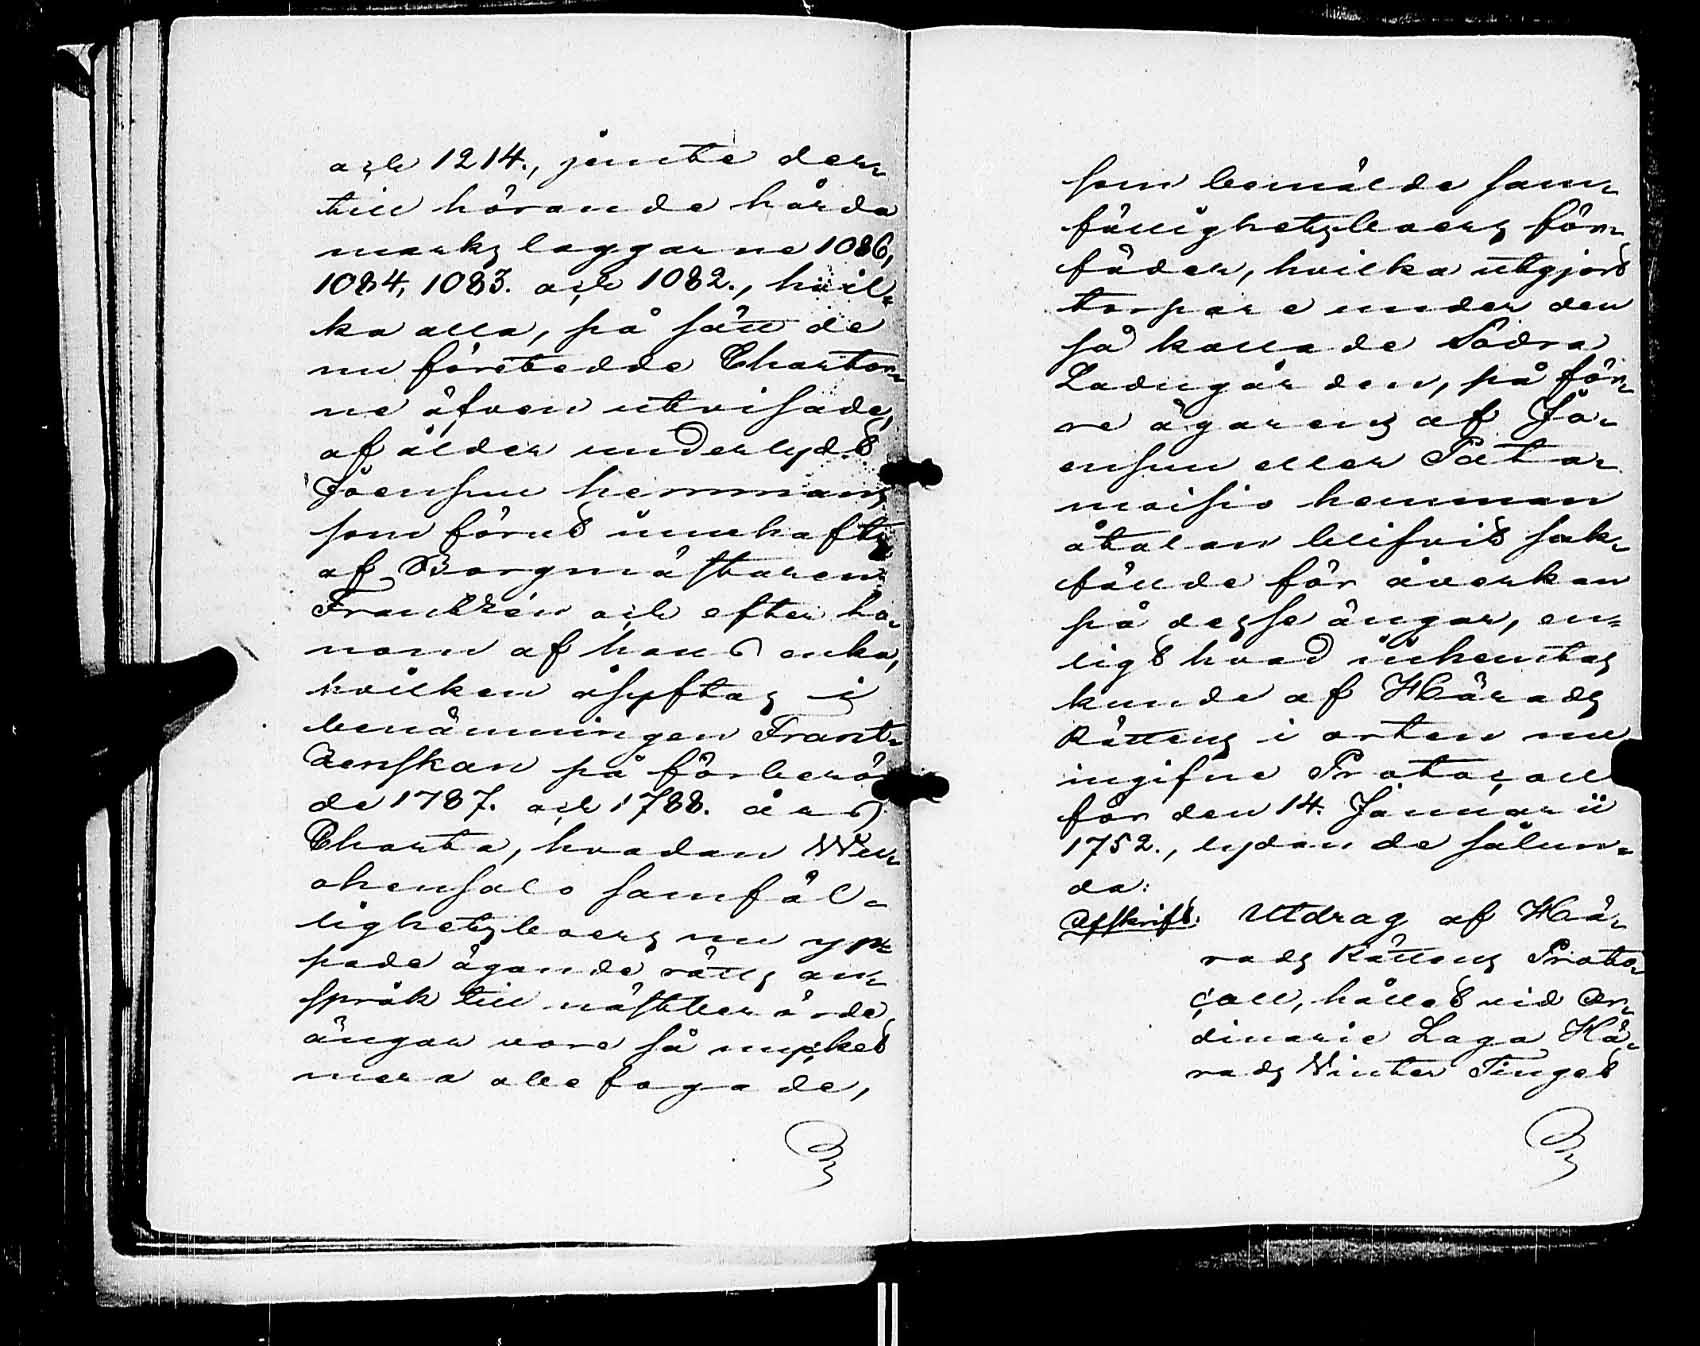 och 1214., jemte der-
till hörande hårda
marks laggarne 1086,
1084, 1083. och 1082., hvil-
ka alla, på sätt de
nu företedde Chartor-
ne äfven utvisade,
af ålder underlydt
Joensuu hemman,
som förut innehafts
af Borgmästaren
Frantzén och efter ho-
nom af hans enka,
hvilken åsyftas i
benämningen Frant-
zenskan på förberör-
de 1787. och 1788. års
Charta, hvadan
samfäl-
lighetsboers nu yp-
pade ägande rätts an-
språk till nästberörde
ängar vore så mycket
mera obefogade,
som bemälde sam-
fällighetsboers för-
fäder, hvilka utgjort
torpare under den
så kallade Södra
Ladugården, på för-
re ägarens af Jo-
ensuu eller
moisio hemman
åtalan blifvit sak-
fällde för åverkan
på desse ängar, en-
ligt hvad inhemtas
kunde af Härads
Rättens i orten nu
ingifne Protocoll
för den 14. Januarii
1752., lydande sålun-
da:
Afskrift. Utdrag af Hä-
rads Rättens Proto-
coll, hållet vid Or-
dinarie Laga Hä-
rads Winter Tinget